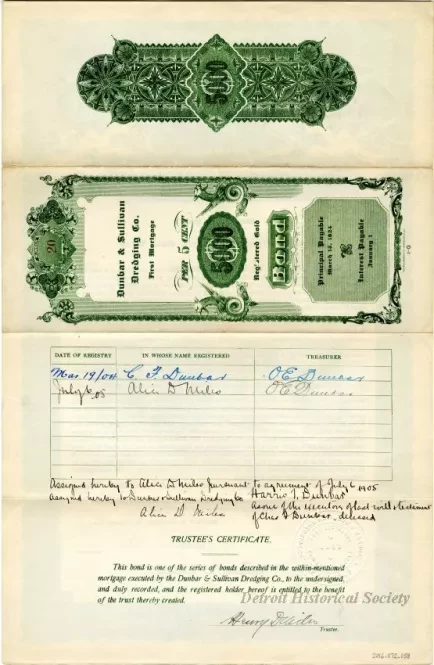 5000
20
Dunbar & Sullivan
Dredging Co.
First Mortgage
5 PER CENT
5000
Registered Gold
Bond
Principal Payable
March 15, 1924
Interest Payable
January 1
DATE OF REGISTRY IN WHOSE NAME REGISTERED TREASURER
Mar 19/04 C. F. Dunbar O E Dunbar
July 6, 05 Alice D Miles O E Dunbar
Assigned hereby to Alice D Miles pursuant to agreement of July 6 1905
Assigned hereby to Dunbar & Sullivan Dredging Co Harris T. Dunbar
Alice D Miles as one of the executors of last will & testament
of Chas F Dunbar, deceased
TRUSTEE'S CERTIFICATE.
This bond is one of the series of bonds described in the within-mentioned
mortgage executed by the Dunbar & Sullivan Dredging Co., to the undersigned,
and duly recorded, and the registered holder hereof is entitled to the benefit
of the trust thereby created.
Detroit Historical Society
Henry
Trustee.